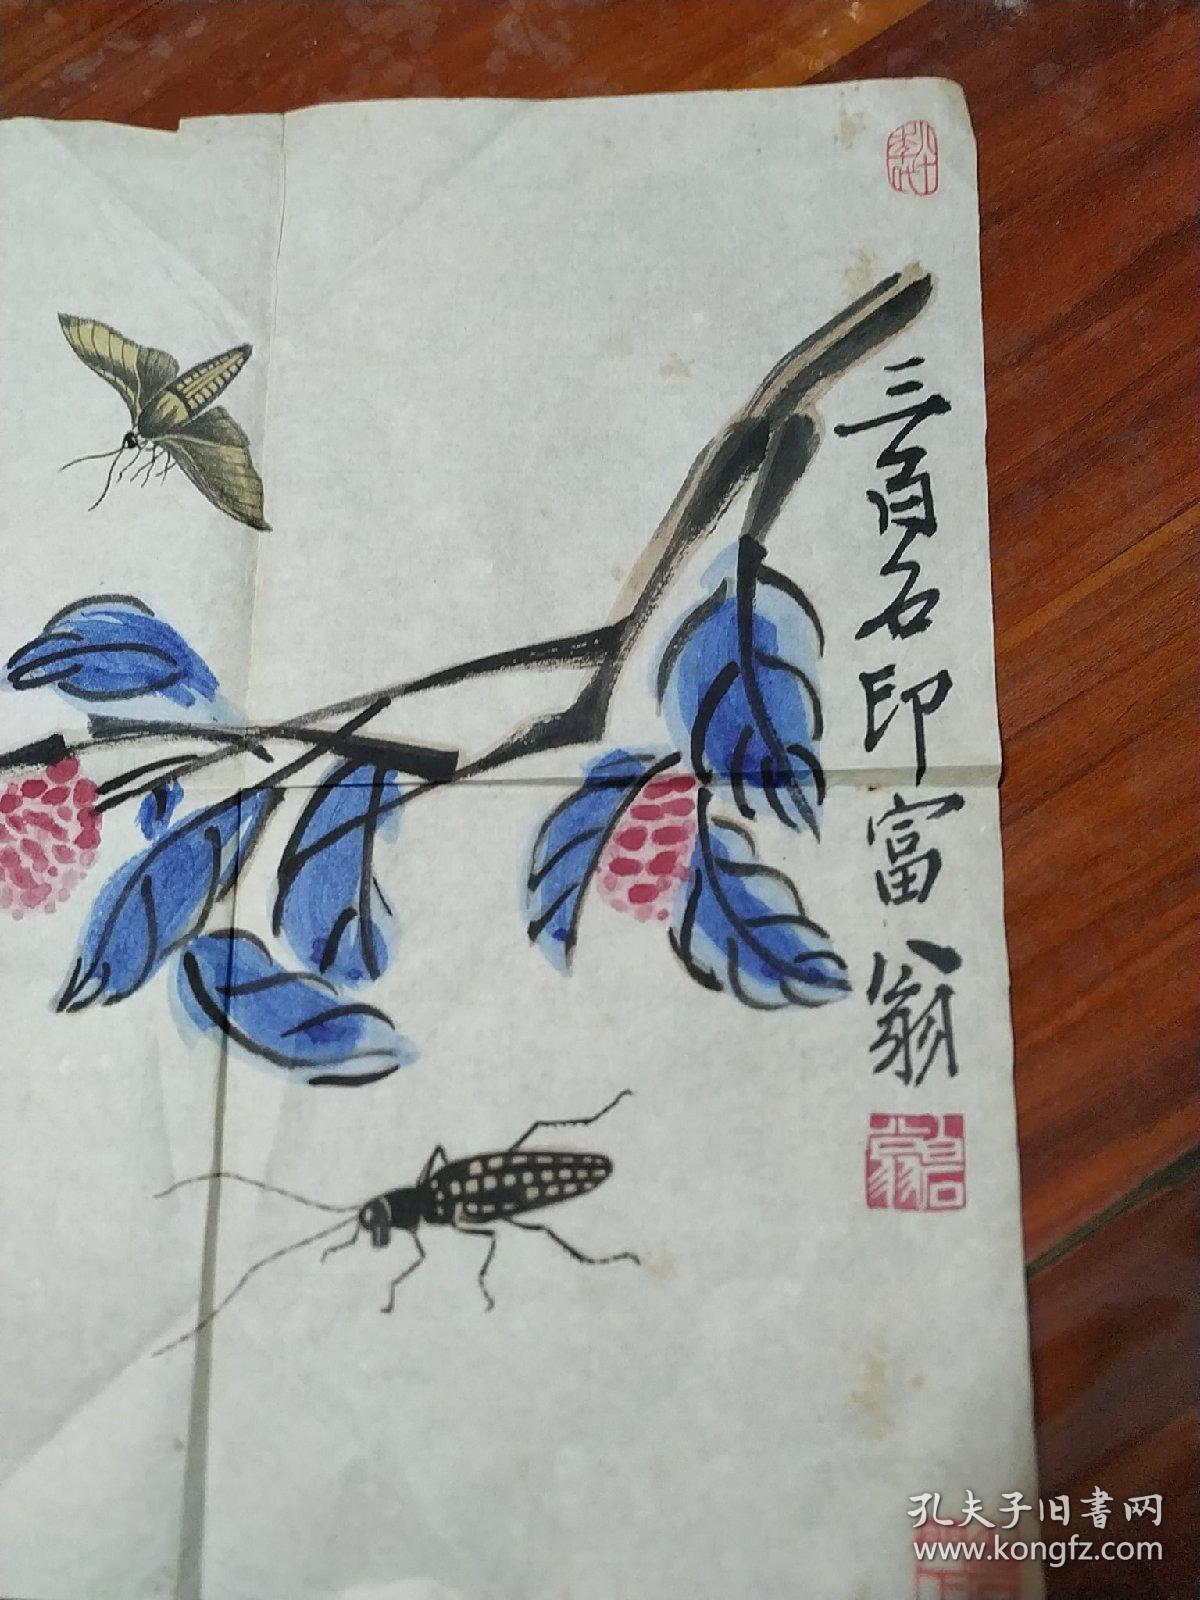 三百石印富翁
孔夫子旧书网
www.kongfz.com